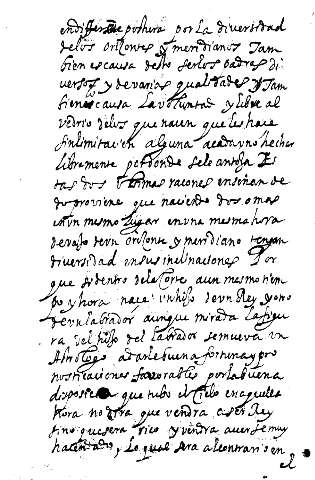 en diferente postura por la diversidad
de los orizontes y meridianos Tam
bien es causa desto ser los padres di
versos y de varias qualidades y Tam
bien es causa la voluntad y libre al
vedrio de los que nacen que les hace
sin limitacion alguna a cada uno hechar
libremente por donde se le antoja Es
tas dos ultimas razones enseñan de
do proviene que naciendo dos o mas
en un mesmo lugar en una mesma hora
debajo de un orizonte y meridiano tengan
diversidad en sus inclinaciones Por
que si dentro de la corte a un mesmo tiem
po y hora nace un hijo de un Rey y otro
de un labrador aunque mirada la figu
ra del hijo del labrador se mueva un
Astrologo a darle buena fortuna y pro
nosticaciones favorables por la buena
disposicion que tubo el Cielo en aquella
hora no dira que vendra a ser Rey
sino que sera rico y vendra a verse muy
hacendado, Lo qual sera al contrario en
el